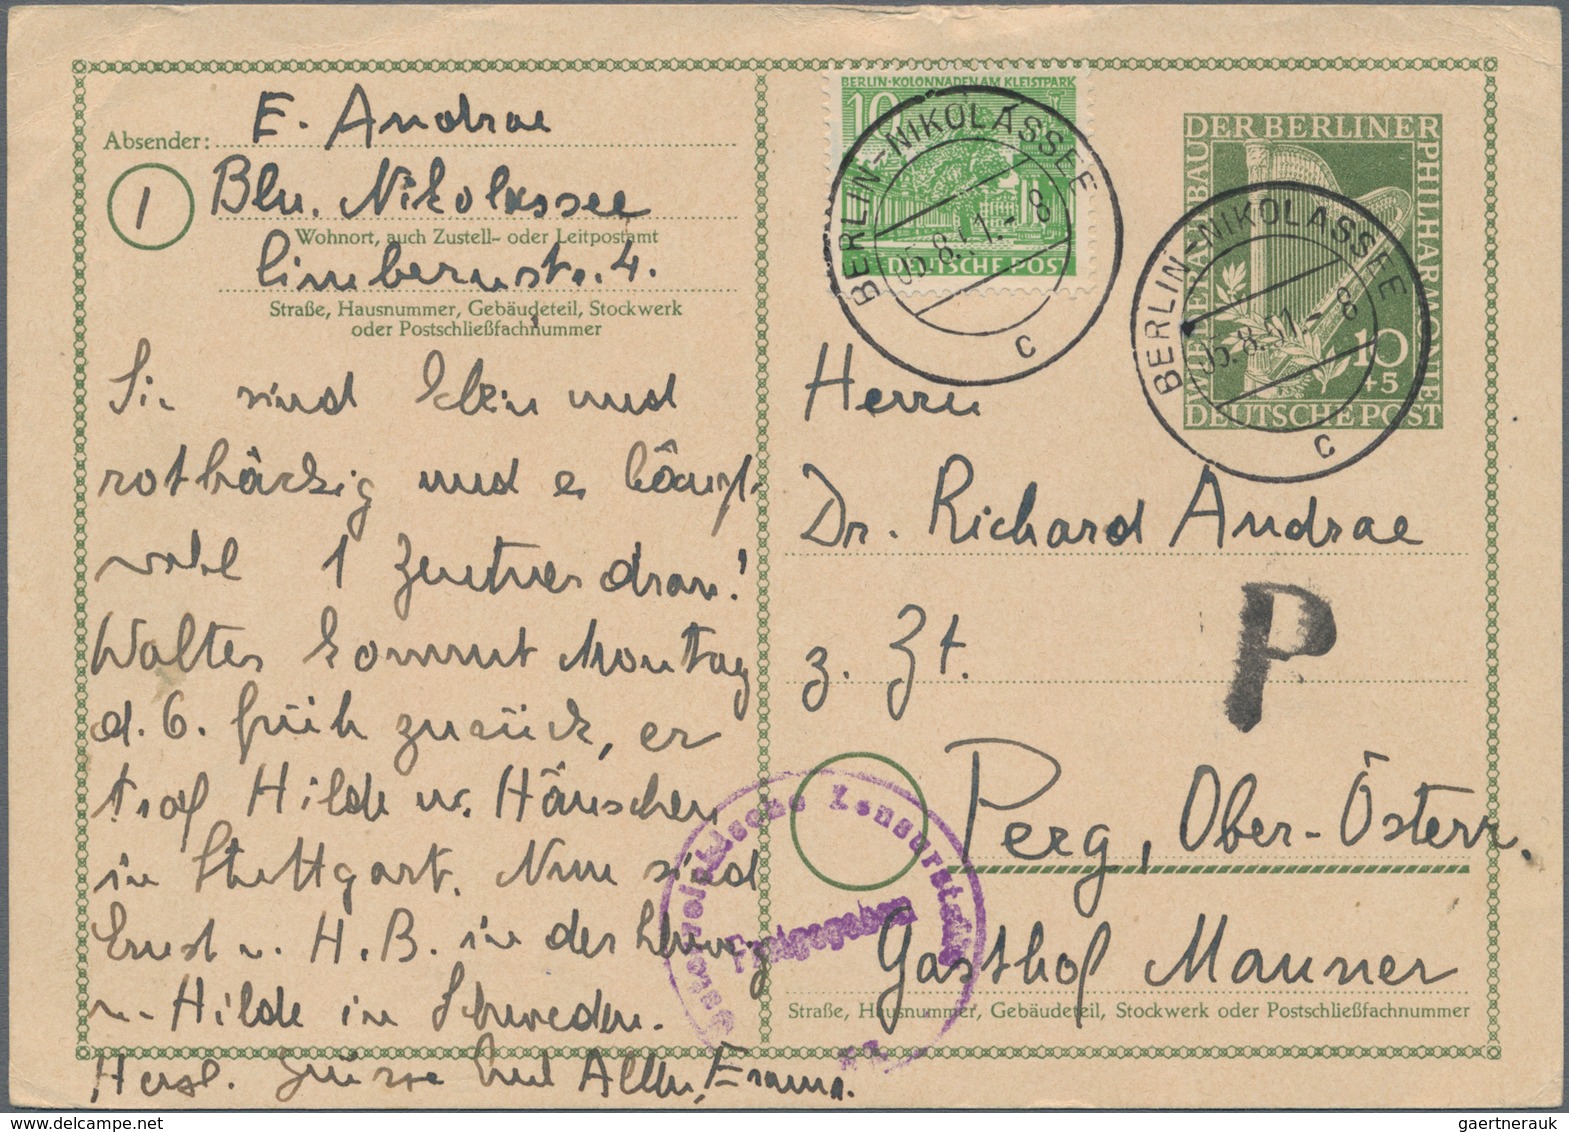 Absender: E. Andrae
1
Bln. Nikolassee
Wohnort, auch Zustell- oder Leitpostamt
4.
Straße, Hausnummer, Gebäudeteil, Stockwerk
oder Postschließfachnummer
Sie sind klein und
rotbäckig und es
wohl 1 Zentner dran!
Walter kommt Montag
d. 6. früh zurück, er
traf Hilde u. Hänschen
in Stuttgart. Nun sind
Ernst u. H. B. in der Schweiz
u. Hilde in Schweden.
Herzl. Grüsse Euch Allen, Erna.
BERLIN·KOLONNADEN AM KLEISTPARK
10
DEUTSCHE POST
BERLIN-NIKOLASSEE
05.8.51.-8
c
WIEDERAUFBAU DER BERLINER PHILHARMONIE
10
+5
DEUTSCHE POST
BERLIN-NIKOLASSEE
05.8.51.-8
c
Herrn
Dr. Richard Andrae
z. Zt.
P
Perg, Ober-Österr.
Gasthof Mauner
Straße, Hausnummer, Gebäudeteil, Stockwerk oder Postschließfachnummer
Oesterreichische Zensurstelle
Freigegeben
gaertnerauk